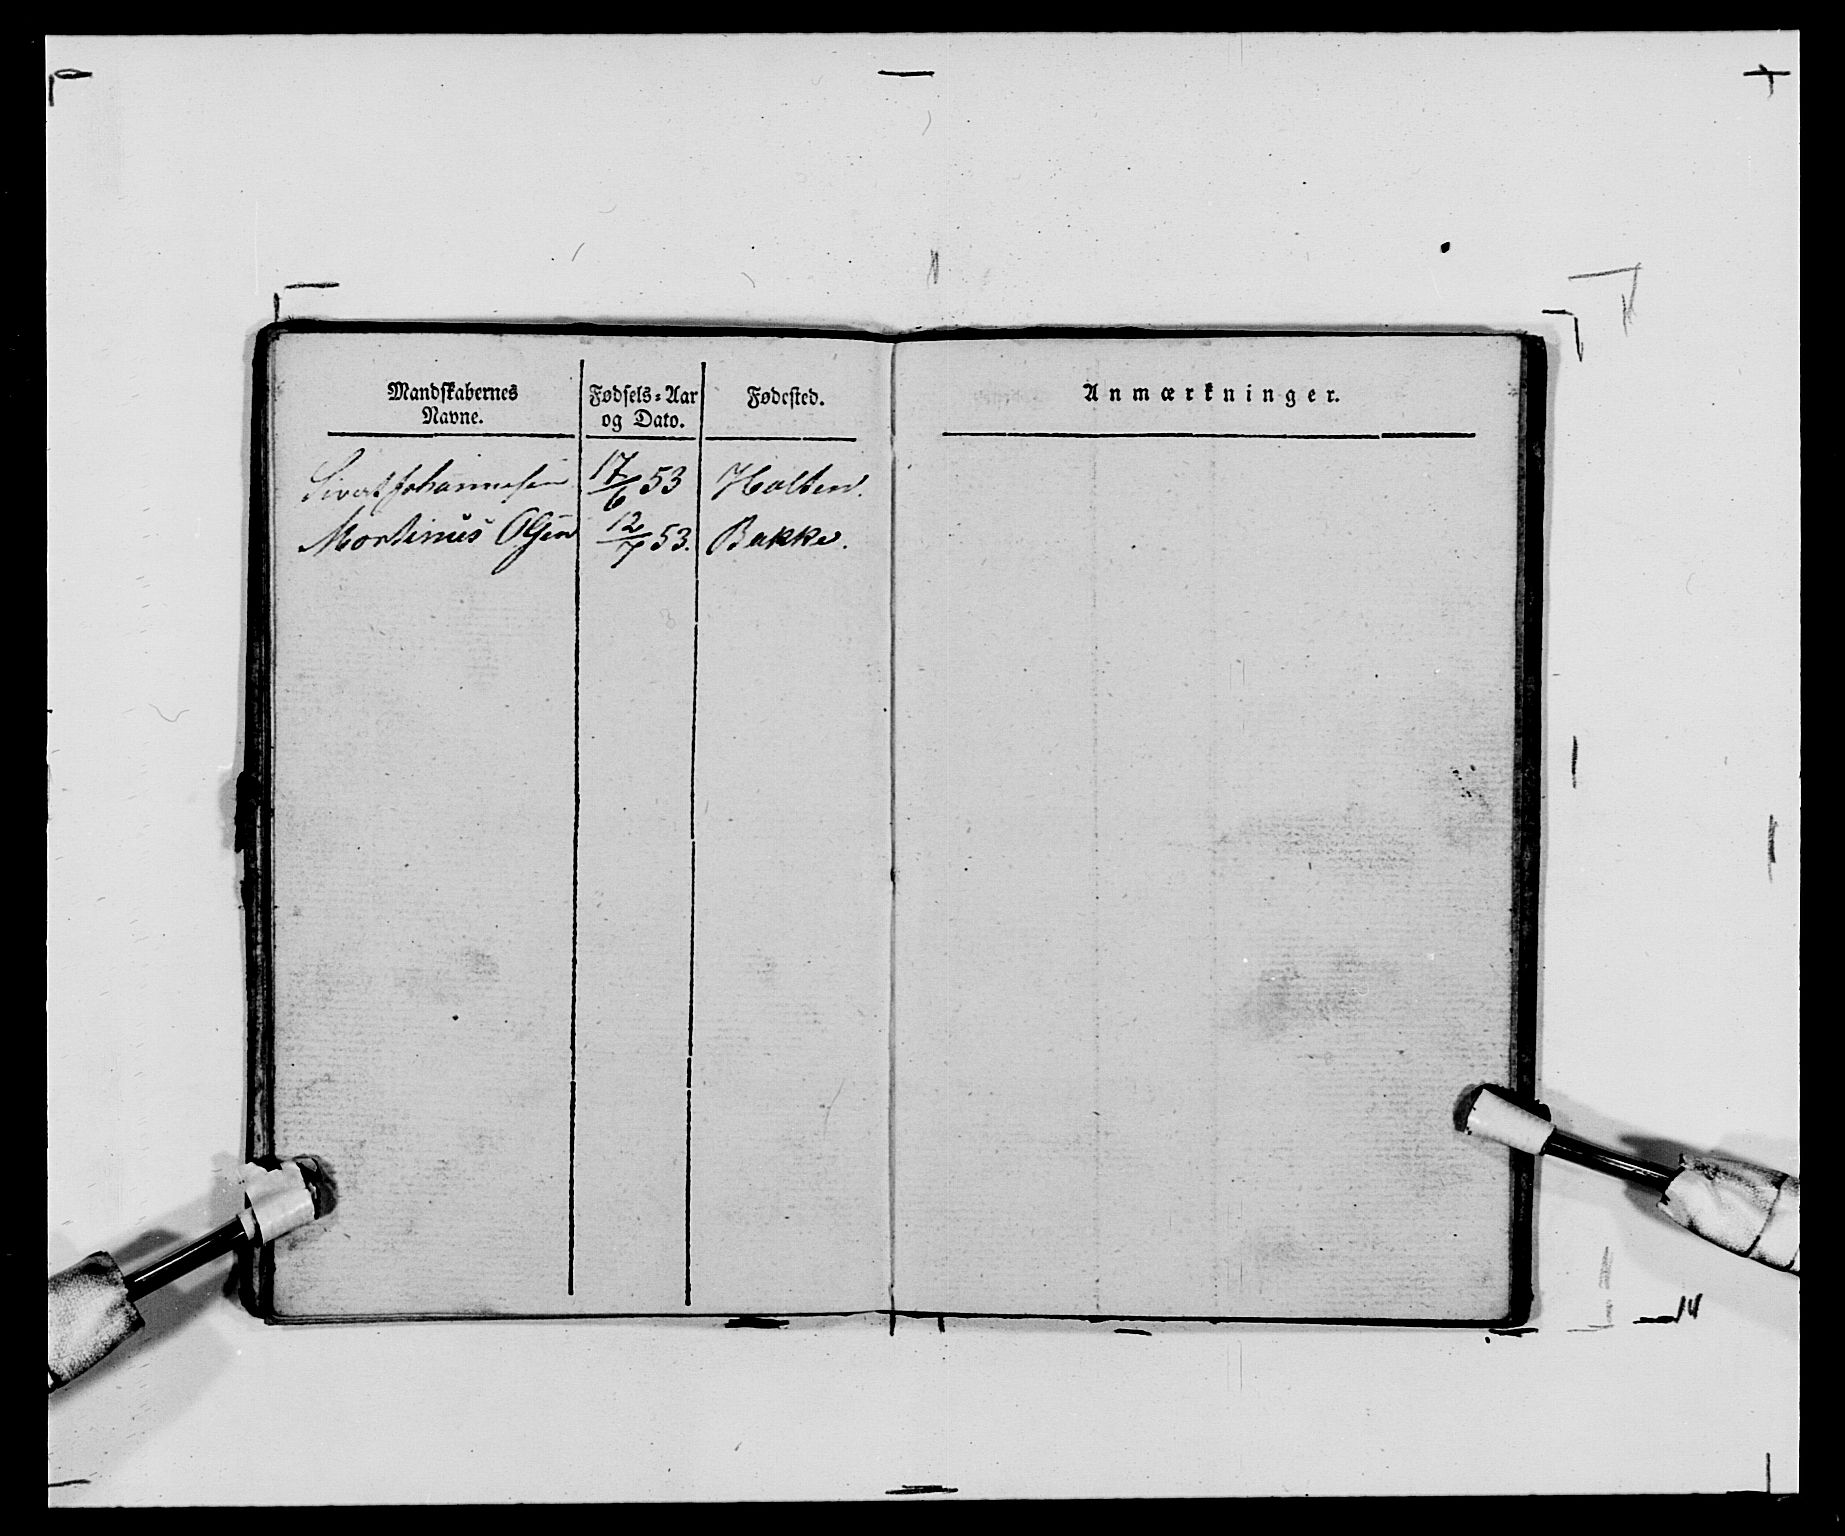 Mandskabernes Navne.
Fødsels-Aar og Dato.
Fødested.
Sivert Johannesen 17/6 53 Holten.
Martinus Olsen 12/7 53. Bakke.
Anmærkninger.
14